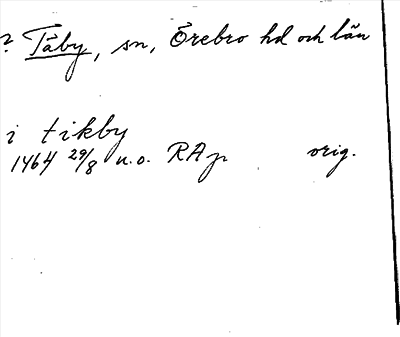 ? Täby, sn, Örebro hd och län
i tikby
1464 29/8 u.o. RAp orig.